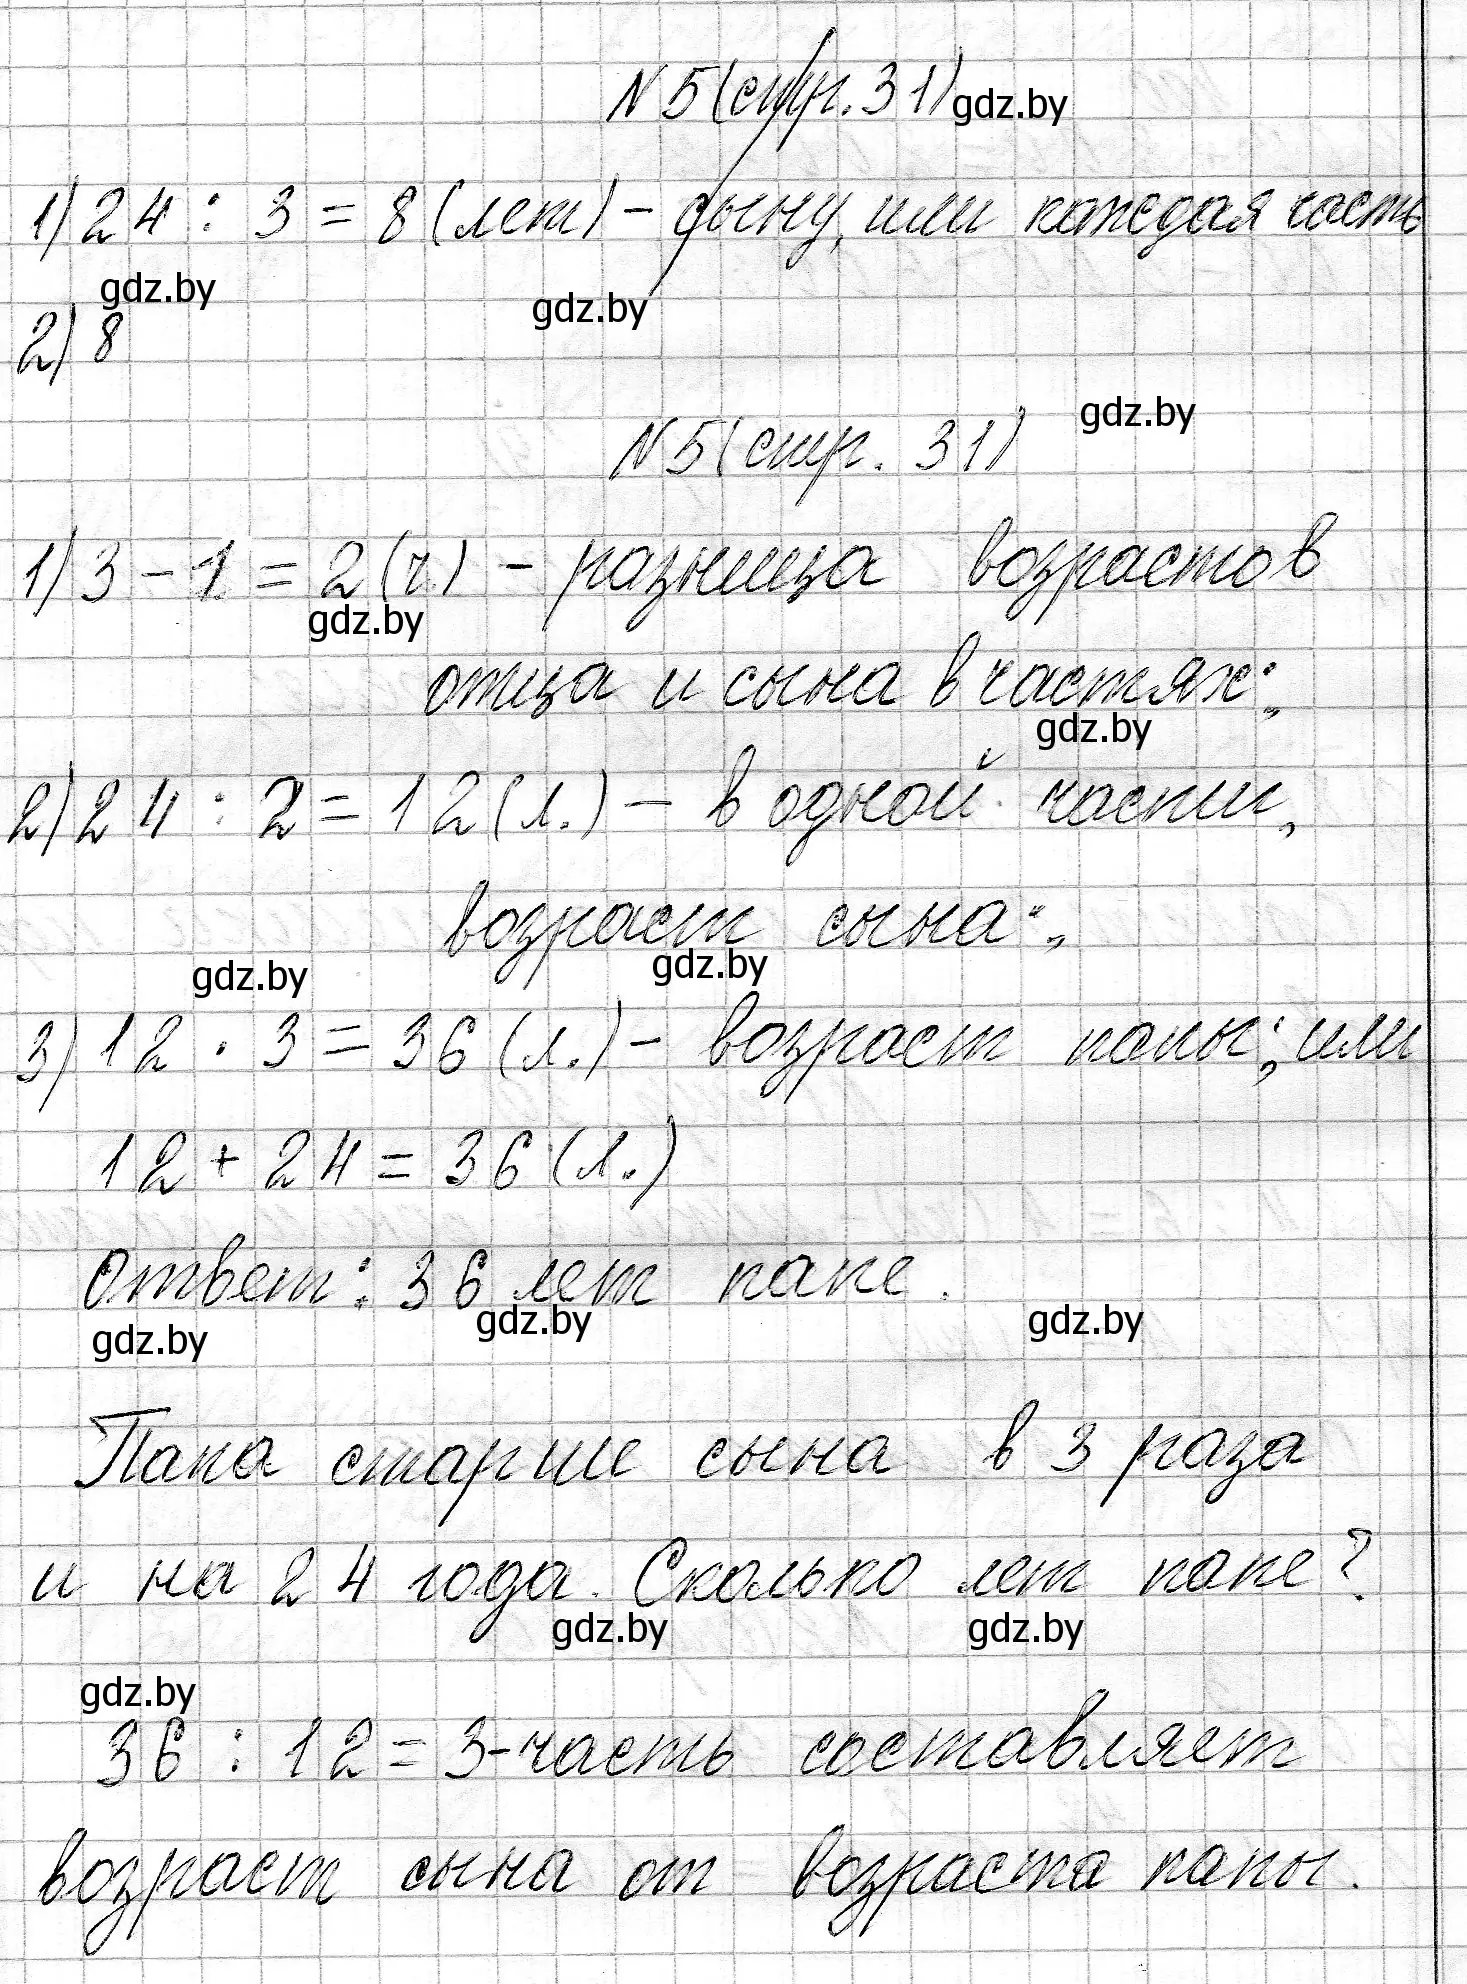 N 5 (стр. 31) gdz.by
1) 24 : 3 = 8 (лет) - сыну, или каждая часть
gdz.by gdz.by
2) 8
gdz.by
N 5 (стр. 31)
1) 3 - 1 = 2 (ч.) - разница возрастов
gdz.by
отца и сына в частях;
gdz.by
2) 24 : 2 = 12 (л.) - в одной части,
возраст сына;
gdz.by gdz.by
3) 12 · 3 = 36 (л.) - возраст папы; или
12 + 24 = 36 (л.)
Ответ: 36 лет папе.
gdz.by gdz.by gdz.by
Папа старше сына в 3 раза
и на 24 года. Сколько лет папе?
gdz.by gdz.by
gdz.by
36 : 12 = 3-часть составляет
возраст сына от возраста папы.